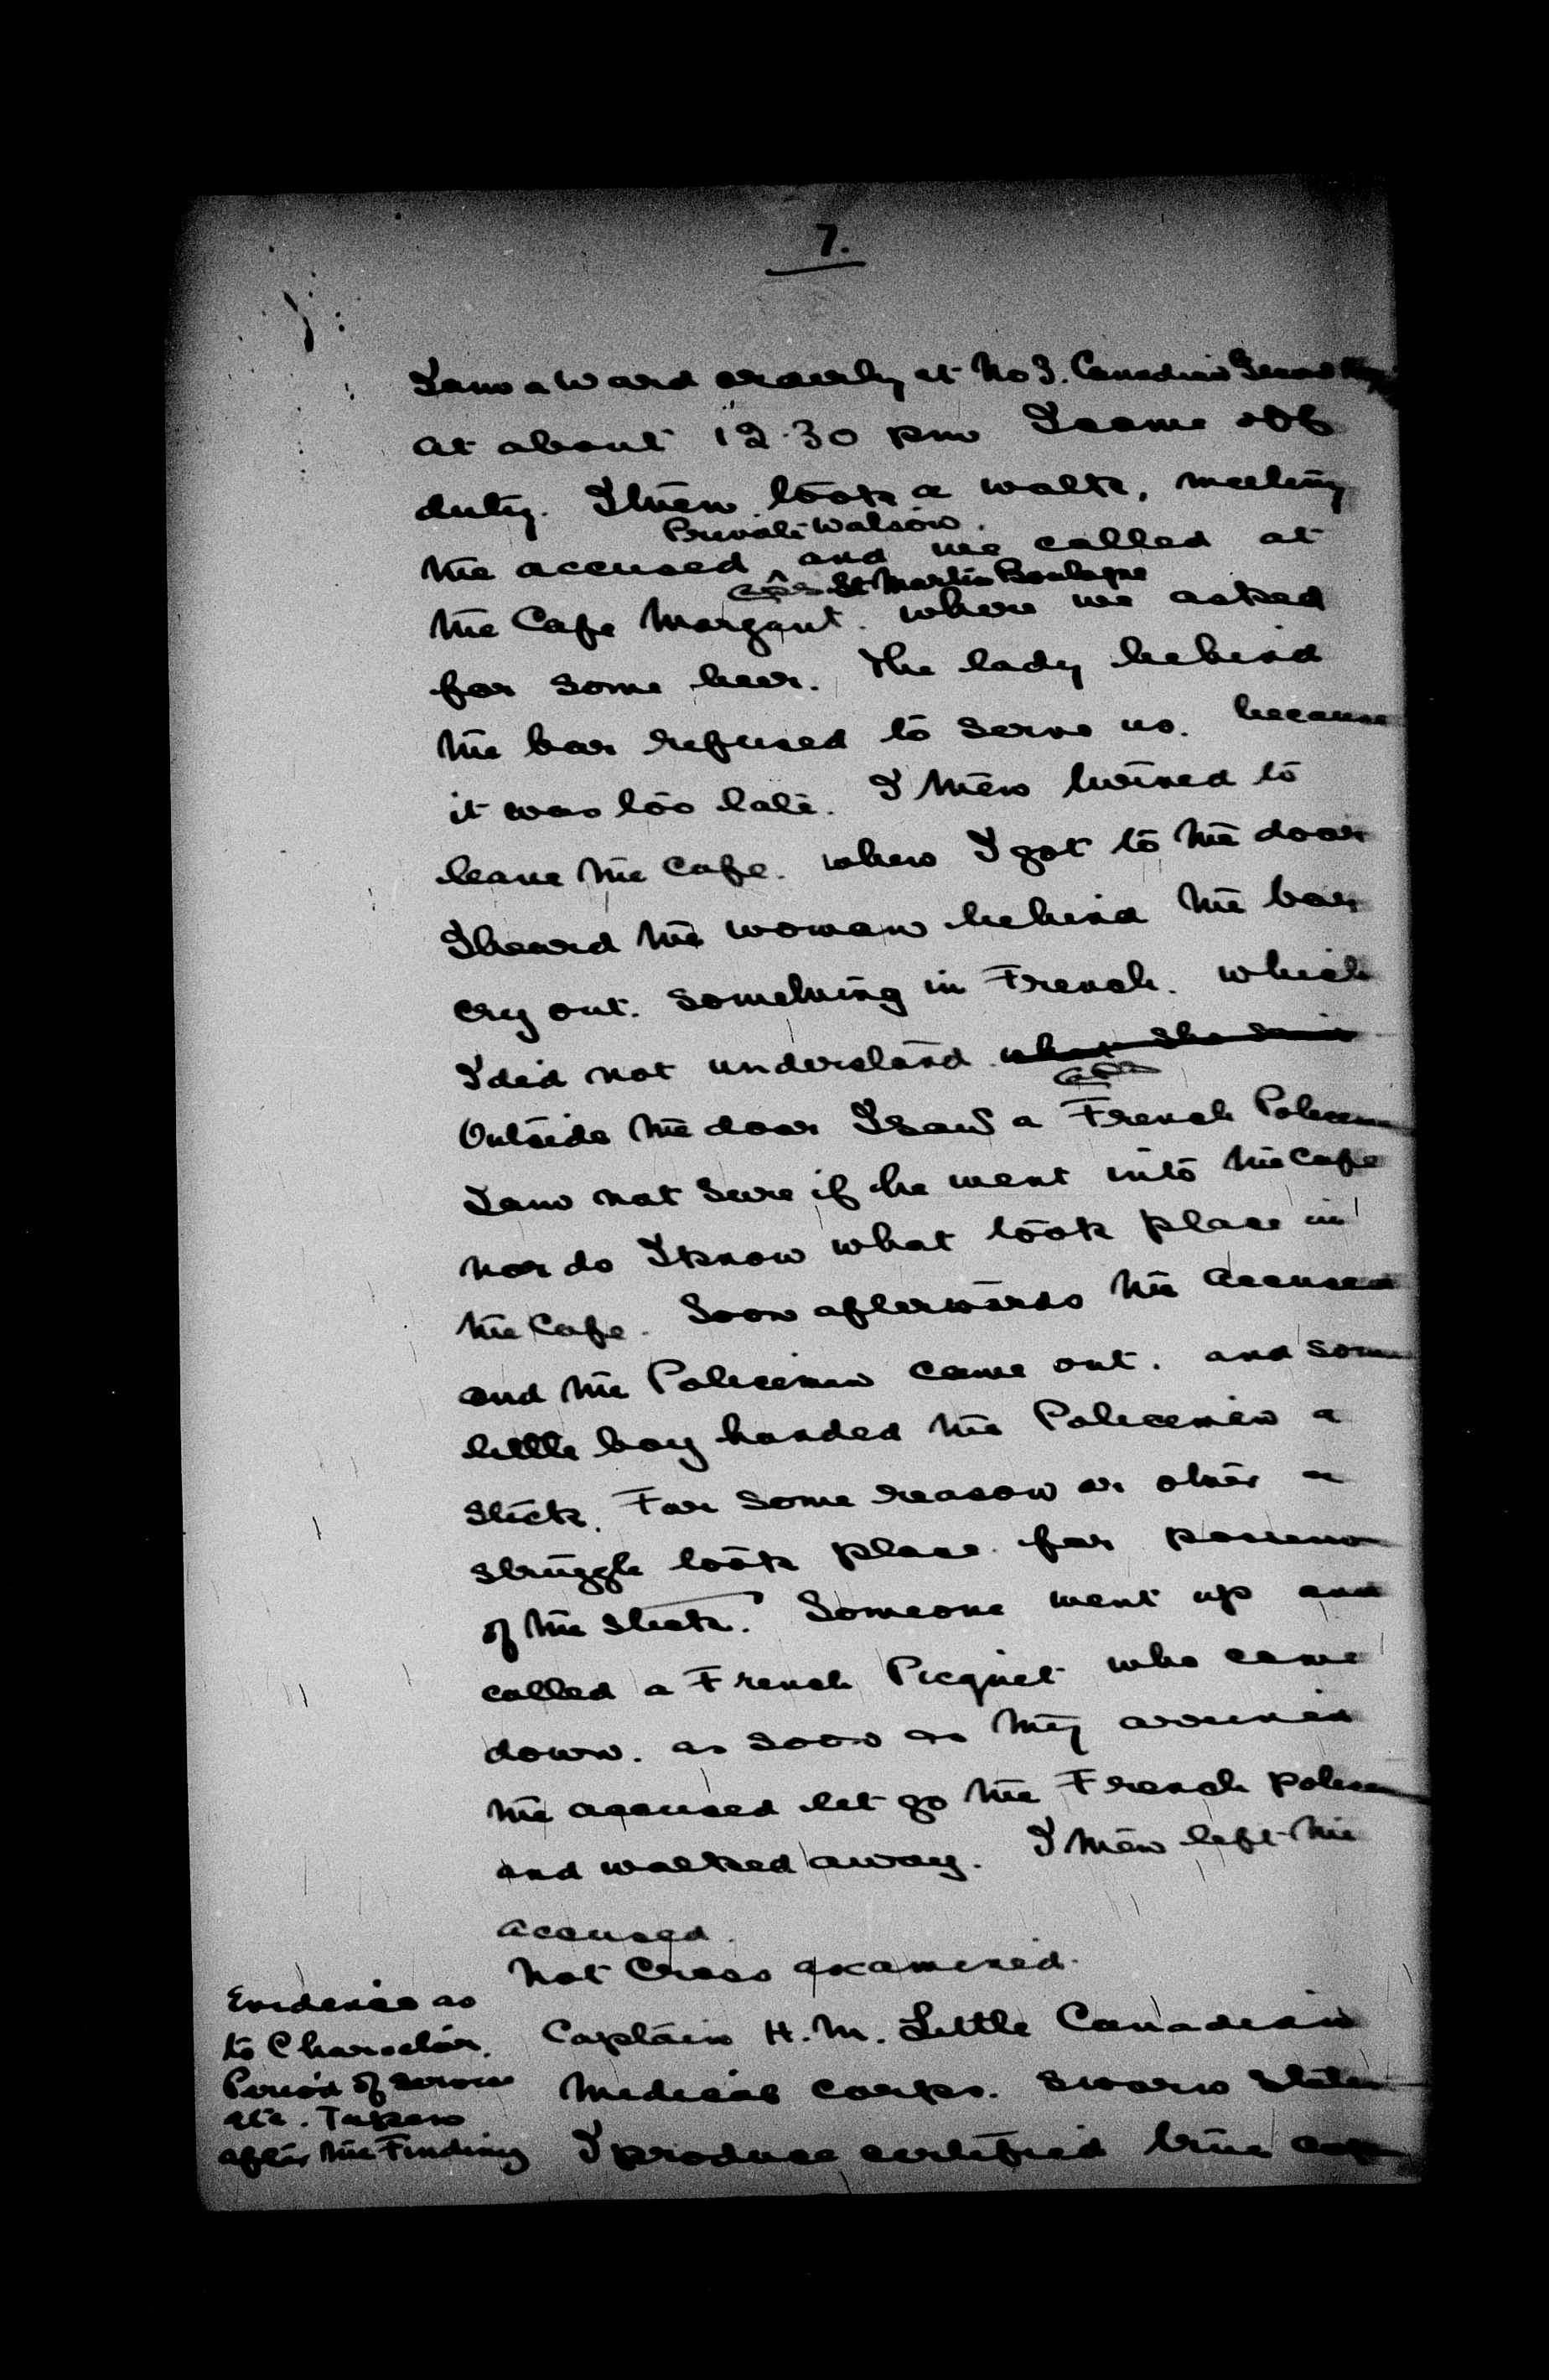 7.
I am a Ward orderly at No 3. Canadian General
at about 12.30 pm I came off
duty. I then took a walk, meeting
Private Watson.
the accused ^ and we called at
St Martin Boulogne
the Cafe Margant. where we asked
for some beer. The lady behind
the bar refused to serve us. because
it was too late. I then turned to
leave the Cafe. when I got to the door
I heard the woman behind the bar
cry out. something in French. which
I did not understand. what she said
Outside the door I saw a French Policeman
I am not sure if he went into the Cafe
nor do I know what took place in
the Cafe. Soon afterwards the accused
and the Policeman came out. and some
little boy handed the Policeman a
stick. For some reason or other a
struggle took place for
of the stick. Someone went up and
called a French Picquet who came
down. as soon as they arrived
the accused let go the French
and walked away. I then left the
accused.
Not Cross examined.
Evidence as
to Character.
Period of Service
etc. Taken
after the Finding
Captain H. M. Little Canadian
Medical Corps. Sworn States
I produce certified true